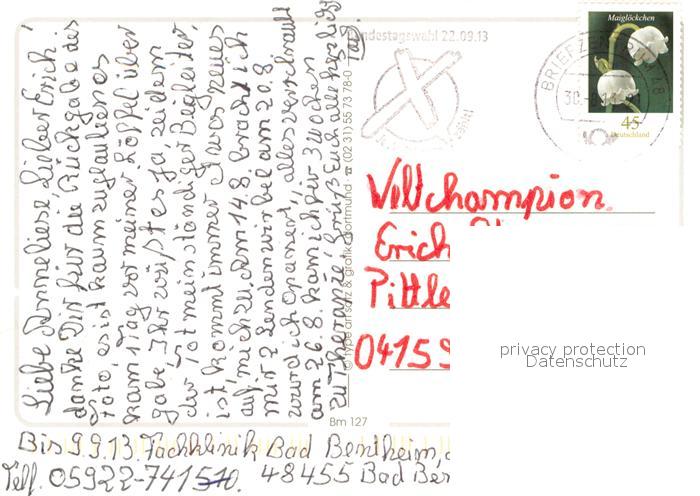 Liebe Anneliese lieber Erich!
danke Dir für die Rückgabe des
Foto, es ist kaum zu glauben es
kam 1 Tag vor meiner Löffel über
gabe. Ihr wüßt es ja, seidem
der ist mein ständiger Begleiter,
ist, kommt immer etwas neues
auf mich zu. Am 14.8. brach ich
mir 2 Lendenwirbel am 20.8.
wurd ich operiert, alles verschraubt
am 26.8. kam ich für 3 Wochen
zu Therapie! Grüß Euch alle herzlich
Bis 9.9.13. Fachklinik Bad Bentheim,
Telf. 05922-741510. 48455 Bad Ben
© type art satz & grafik dortmund · ☎ (02 31) 55 73 78-0
Bm 127
Bundestagswahl 22.09.13
BRIEFZEN 48
30.-8
Maiglöckchen
45
Deutschland
Weltchampion
Erich
Pittle
04159
privacy protection
Datenschutz